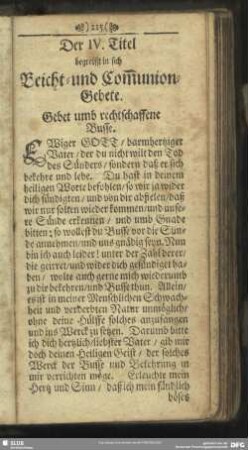 ) 225 (
Der IV. Titel
begreifft in sich
Beicht- und Com̃union-
Gebete.
Gebet umb rechtschaffene
Busse.
EWiger GOTT / barmhertziger
Vater / der du nicht wilt den Tod
des Sünders / sondern daß er sich
bekehre und lebe. Du hast in deinem
heiligen Worte befohlen / so wir wider
dich sündigten / und von dir abfielen / daß
wir nur solten wieder kommen / und unse-
re Sünde erkennen / und umb Gnade
bitten: so wollest du Busse vor die Sün-
de annehmen / und uns gnädig seyn. Nun
bin ich auch leider! unter der Zahl derer /
die geirret / und wider dich gesündiget ha-
ben / wolte auch gerne mich wiederumb
zu dir bekehren / und Busse thun. Allein /
es ist in meiner Menschlichen Schwach-
heit und verderbten Natur unmöglich /
ohne deine Hülffe solches anzufangen
und ins Werck zu setzen. Darumb bitte
ich dich hertzlich / liebster Vater / gib mir
doch deinen Heiligen Geist / der solches
Werck der Busse und Bekehrung in
mir verrichten möge. Erleuchte mein
Hertz und Sinn / daß ich mein sündlich
böses
SLUB